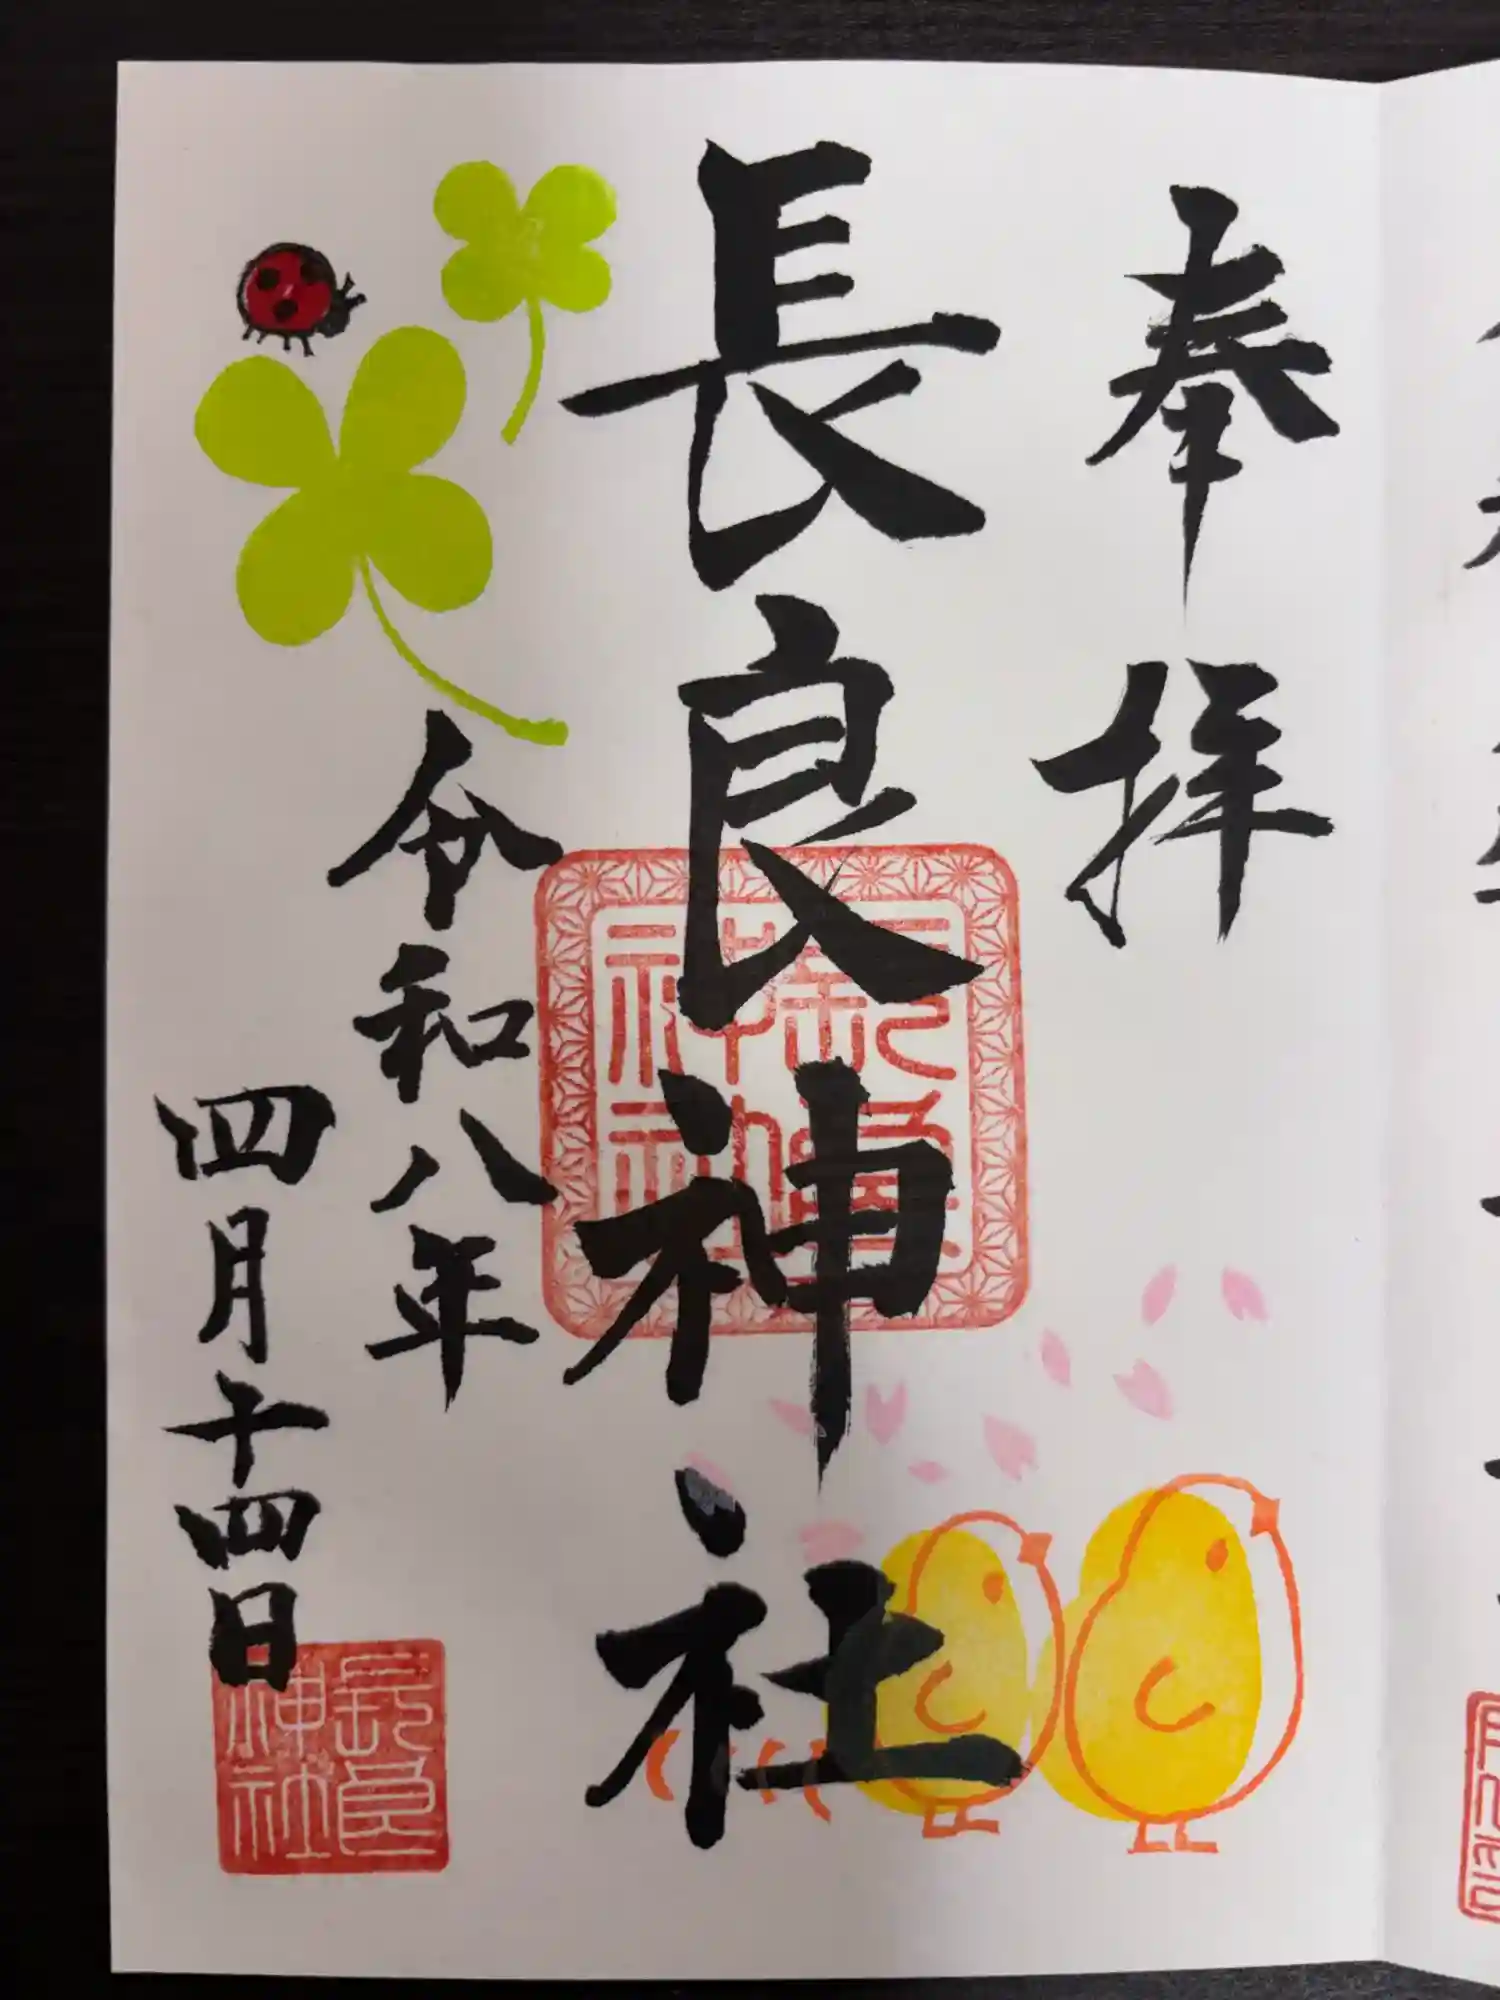 奉拝
長良神社
令和八年
四月十四日
長良神社
長良神社